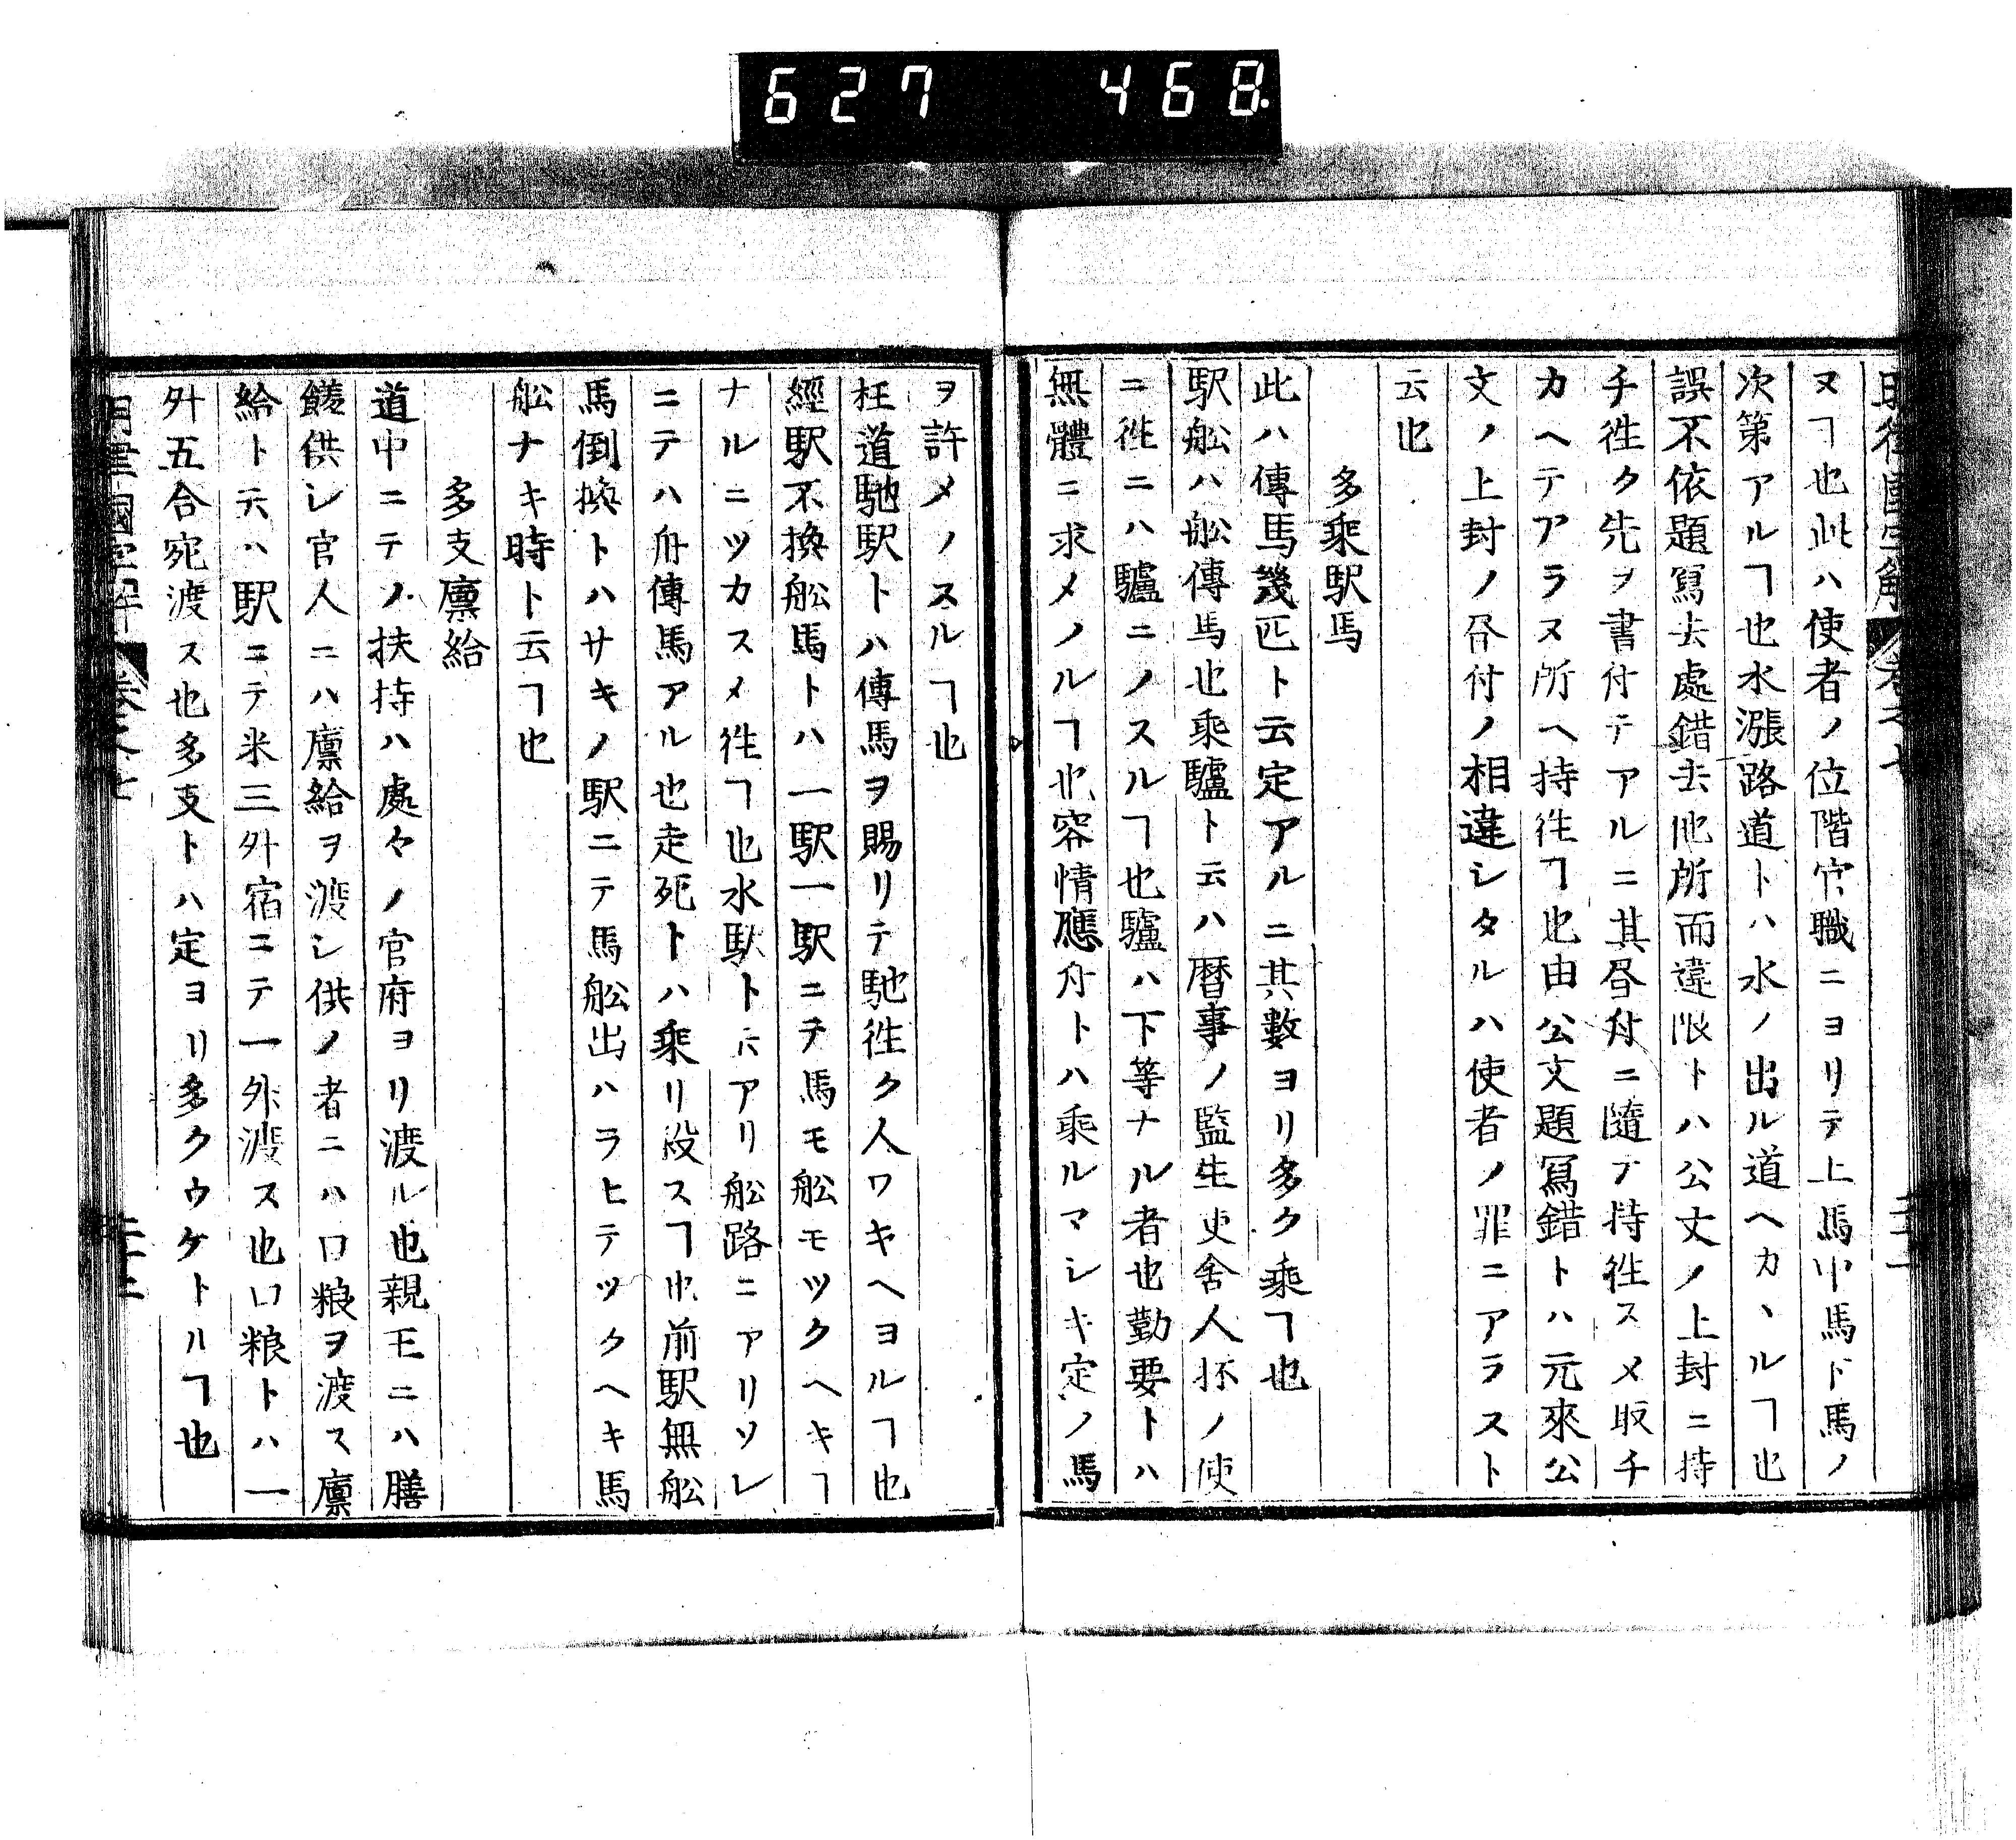 627 468
ヌヿ也此ハ使者ノ位階官職ニヨリテ上馬中馬下馬ノ
次第アルヿ也水漲路道トハ水ノ出ル道ヘカヽルヿ也
誤不依題寫去處錯去他所而違限トハ公文ノ上封ニ持
チ徃ク先ヲ書付テアルニ其昏付ニ隨テ持徃スメ取チ
カヘテアラヌ所ヘ持徃ヿ也由公文題寫錯トハ元來公
文ノ上封ノ昏付ノ相違シタルハ使者ノ罪ニアラスト
云也
多乘駅馬
此ハ傳馬幾匹ト云定アルニ其數ヨリ多ク乘ヿ也
駅舩ハ舩傳馬也乘驢ト云ハ暦事ノ監生吏舍人抔ノ使
ニ徃ニハ驢ニノスルヿ也驢ハ下等ナル者也勤要トハ
無體ニ求メノルヿ也容情應付トハ乘ルマシキ定ノ馬
ヲ許メノスルヿ也
枉道馳駅トハ傳馬ヲ賜リテ馳徃ク人ワキヘヨルヿ也
經駅不換舩馬トハ一駅一駅ニテ馬モ舩モツクヘキヿ
ナルニツカスメ徃ヿ也水駅トハアリ舩路ニアリソレ
ニテハ舟傳馬アル也走死トハ乘リ殺スヿ也前駅無舩
馬倒換トハサキノ駅ニテ馬舩出ハラヒテツクヘキ馬
舩ナキ時ト云ヿ也
多支廩給
道中ニテノ扶持ハ處々ノ官府ヨリ渡ル也親王ニハ膳
饈供シ官人ニハ廩給ヲ渡シ供ノ者ニハ口粮ヲ渡ス廩
給ト云ハ駅ニテ米三升宿ニテ一升渡ス也口粮トハ一
升五合宛渡ス也多支トハ定ヨリ多クウケトルヿ也
明律國字解 卷之七 二十二